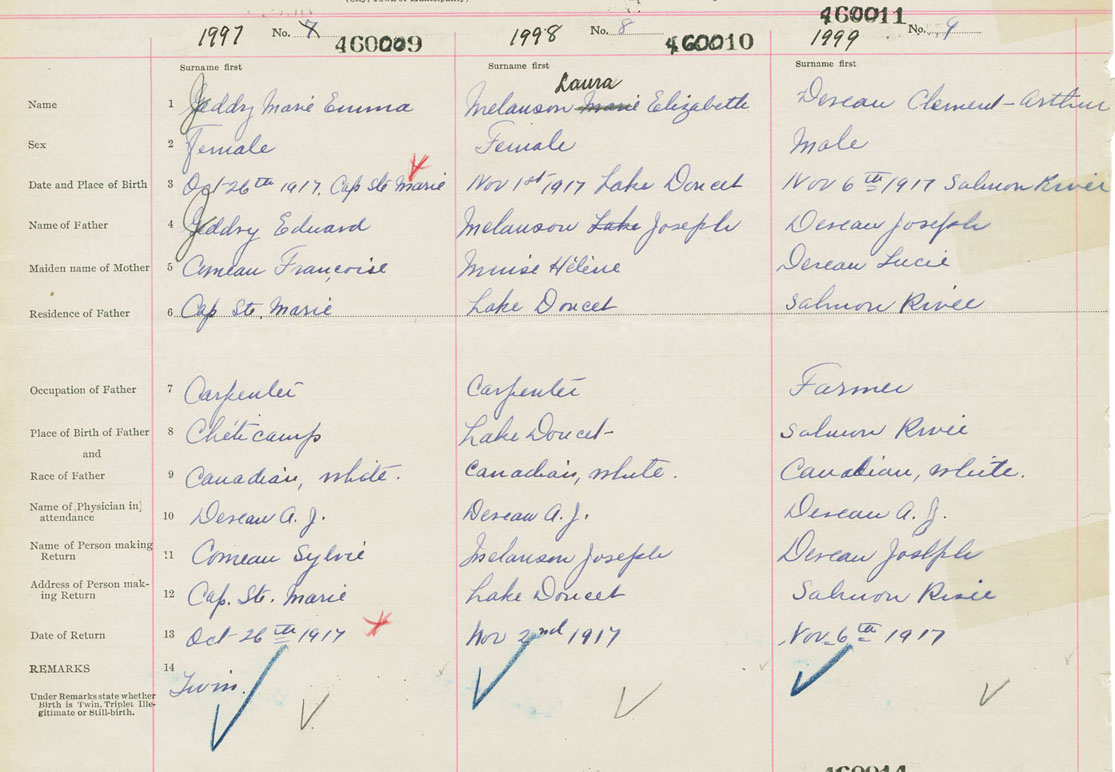 (City, Town or Municipality)
460011
1997 No. 7 460009 1998 No. 8 460010 1999 No. 9
Surname first Surname first Surname first
Laura
Name 1 Jeddry Marie Emma Melanson Marie Elizabeth Deveau Clement-Arthur
Sex 2 Female Female Male
Date and Place of Birth 3 Oct 26th 1917. Cap Ste Marie Nov 1st 1917 Lake Doucet Nov 6th 1917 Salmon River
Name of Father 4 Jeddry Edward Melanson Lake Joseph Deveau Joseph
Maiden name of Mother 5 Comeau Françoise Muise Hélène Deveau Lucie
Residence of Father 6 Cap Ste. Marie Lake Doucet Salmon River
Occupation of Father 7 Carpenter Carpenter Farmer
Place of Birth of Father 8 Chéticamp Lake Doucet- Salmon River
and
Race of Father 9 Canadian, white. Canadian, white. Canadian, white.
Name of Physician in
attendance 10 Deveau A. J. Deveau A. J. Deveau A. J.
Name of Person making
Return 11 Comeau Sylvie Melanson Joseph Deveau Joseph
Address of Person mak-
ing Return 12 Cap. Ste. Marie Lake Doucet Salmon River
Date of Return 13 Oct 26th 1917 Nov 2nd 1917 Nov. 6th 1917
REMARKS 14
Twin.
Under Remarks state whether
Birth is Twin, Triplet Ille-
gitimate or Still-birth.